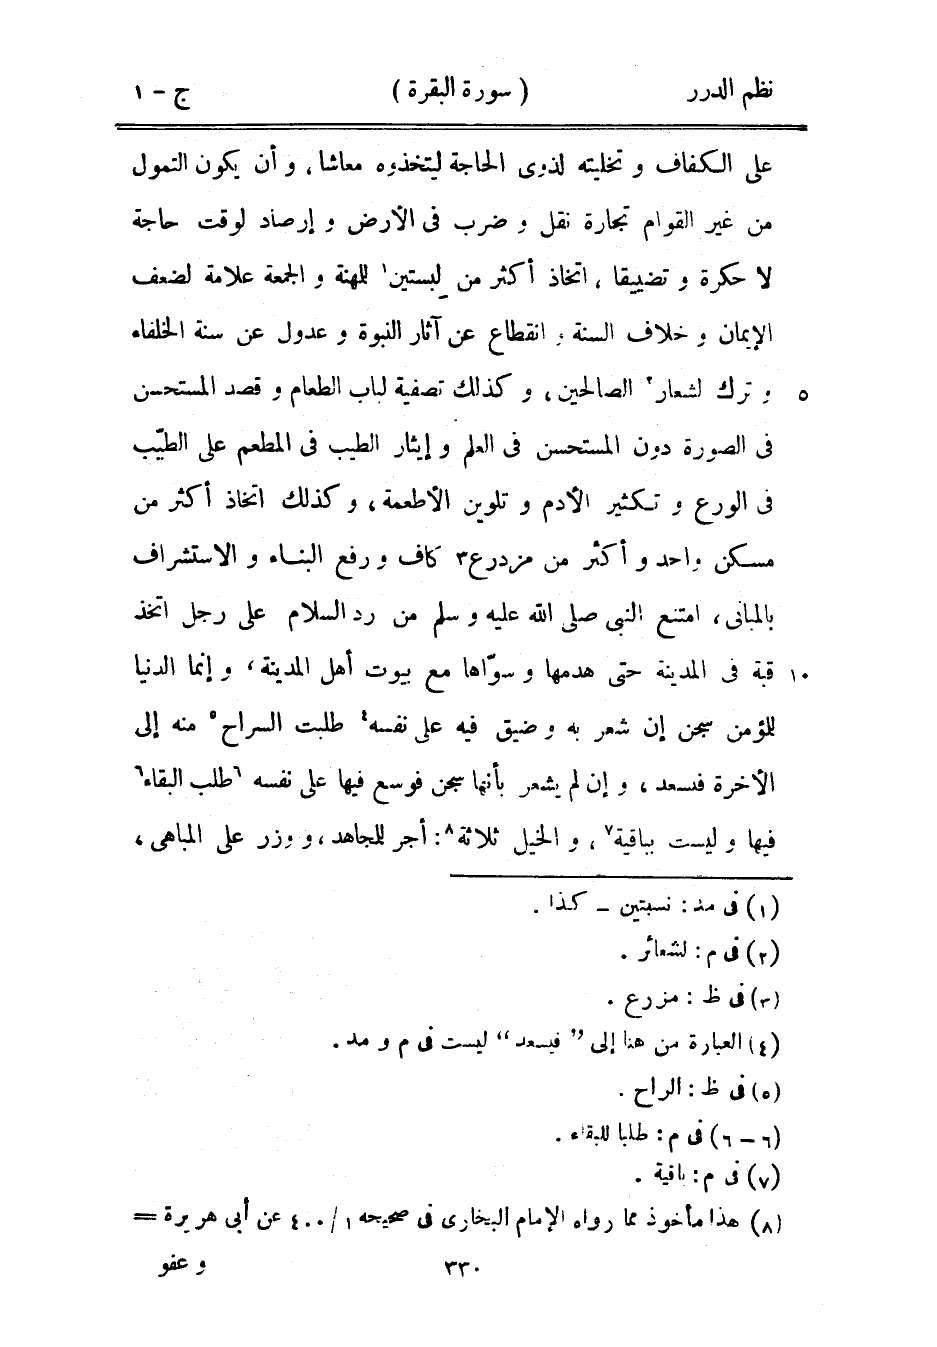 نظم الدرر ( سورة البقرة ) ج - ١
على الكفاف و تخليته لذوى الحاجة ليتخذوه معاشا، و أن يكون التمول
من غير القوام تجارة نقل و ضرب فى الأرض و إرصاد لوقت حاجة
لا حكرة و تضييقا ، اتخاذ أكثر من لبستين١ للهنة و الجمعة علامة لضعف
الإيمان و خلاف السنة و انقطاع عن آثار النبوة و عدول عن سنة الخلفاء
٥ و ترك لشعار٢ الصالحين، و كذلك تصفية لباب الطعام و قصد المستحسن
فى الصورة دون المستحسن فى العلم و إيثار الطيب فى المطعم على الطيّب
فى الورع و تكثير الأدم و تلوين الأطعمة، و كذلك اتخاذ أكثر من
مسكن واحد و أكثر من مزدرع٣ كاف و رفع البناء و الاستشراف
بالمبانى، امتنع النبى صلى الله عليه و سلم من رد السلام على رجل اتخذ
١٠ قبة فى المدينة حتى هدمها و سوّاها مع بيوت أهل المدينة، و إنما الدنيا
للؤمن سجن إن شعر به و ضيق فيه على نفسه٤ طلبت السراح٥ منه إلى
الأخرة فسعد ، و إن لم يشعر بأنها سجن فوسع فيها على نفسه ٦طلب البقاء٦
فيها و ليست بباقية٧، و الخيل ثلاثة٨: أجر للجاهد، و وزر على المباهى،
(١) فى مد : نسبتين - كذا .
(٢) فى م : لشعائر .
(٣) فى ظ : مزرع .
(٤) العبارة من هنا إلى ” فيسعد “ ليست فى م و مد .
(٥) فى ظ : الراح .
(٦ - ٦) فى م : طلبا للبقاء .
(٧) فى م : باقية .
(٨) هذا مأخوذ مما رواه الإمام البخارى فى صحيحه ١ / ٤٠٠ عن أبى هريرة =
٣٣٠ و عفو